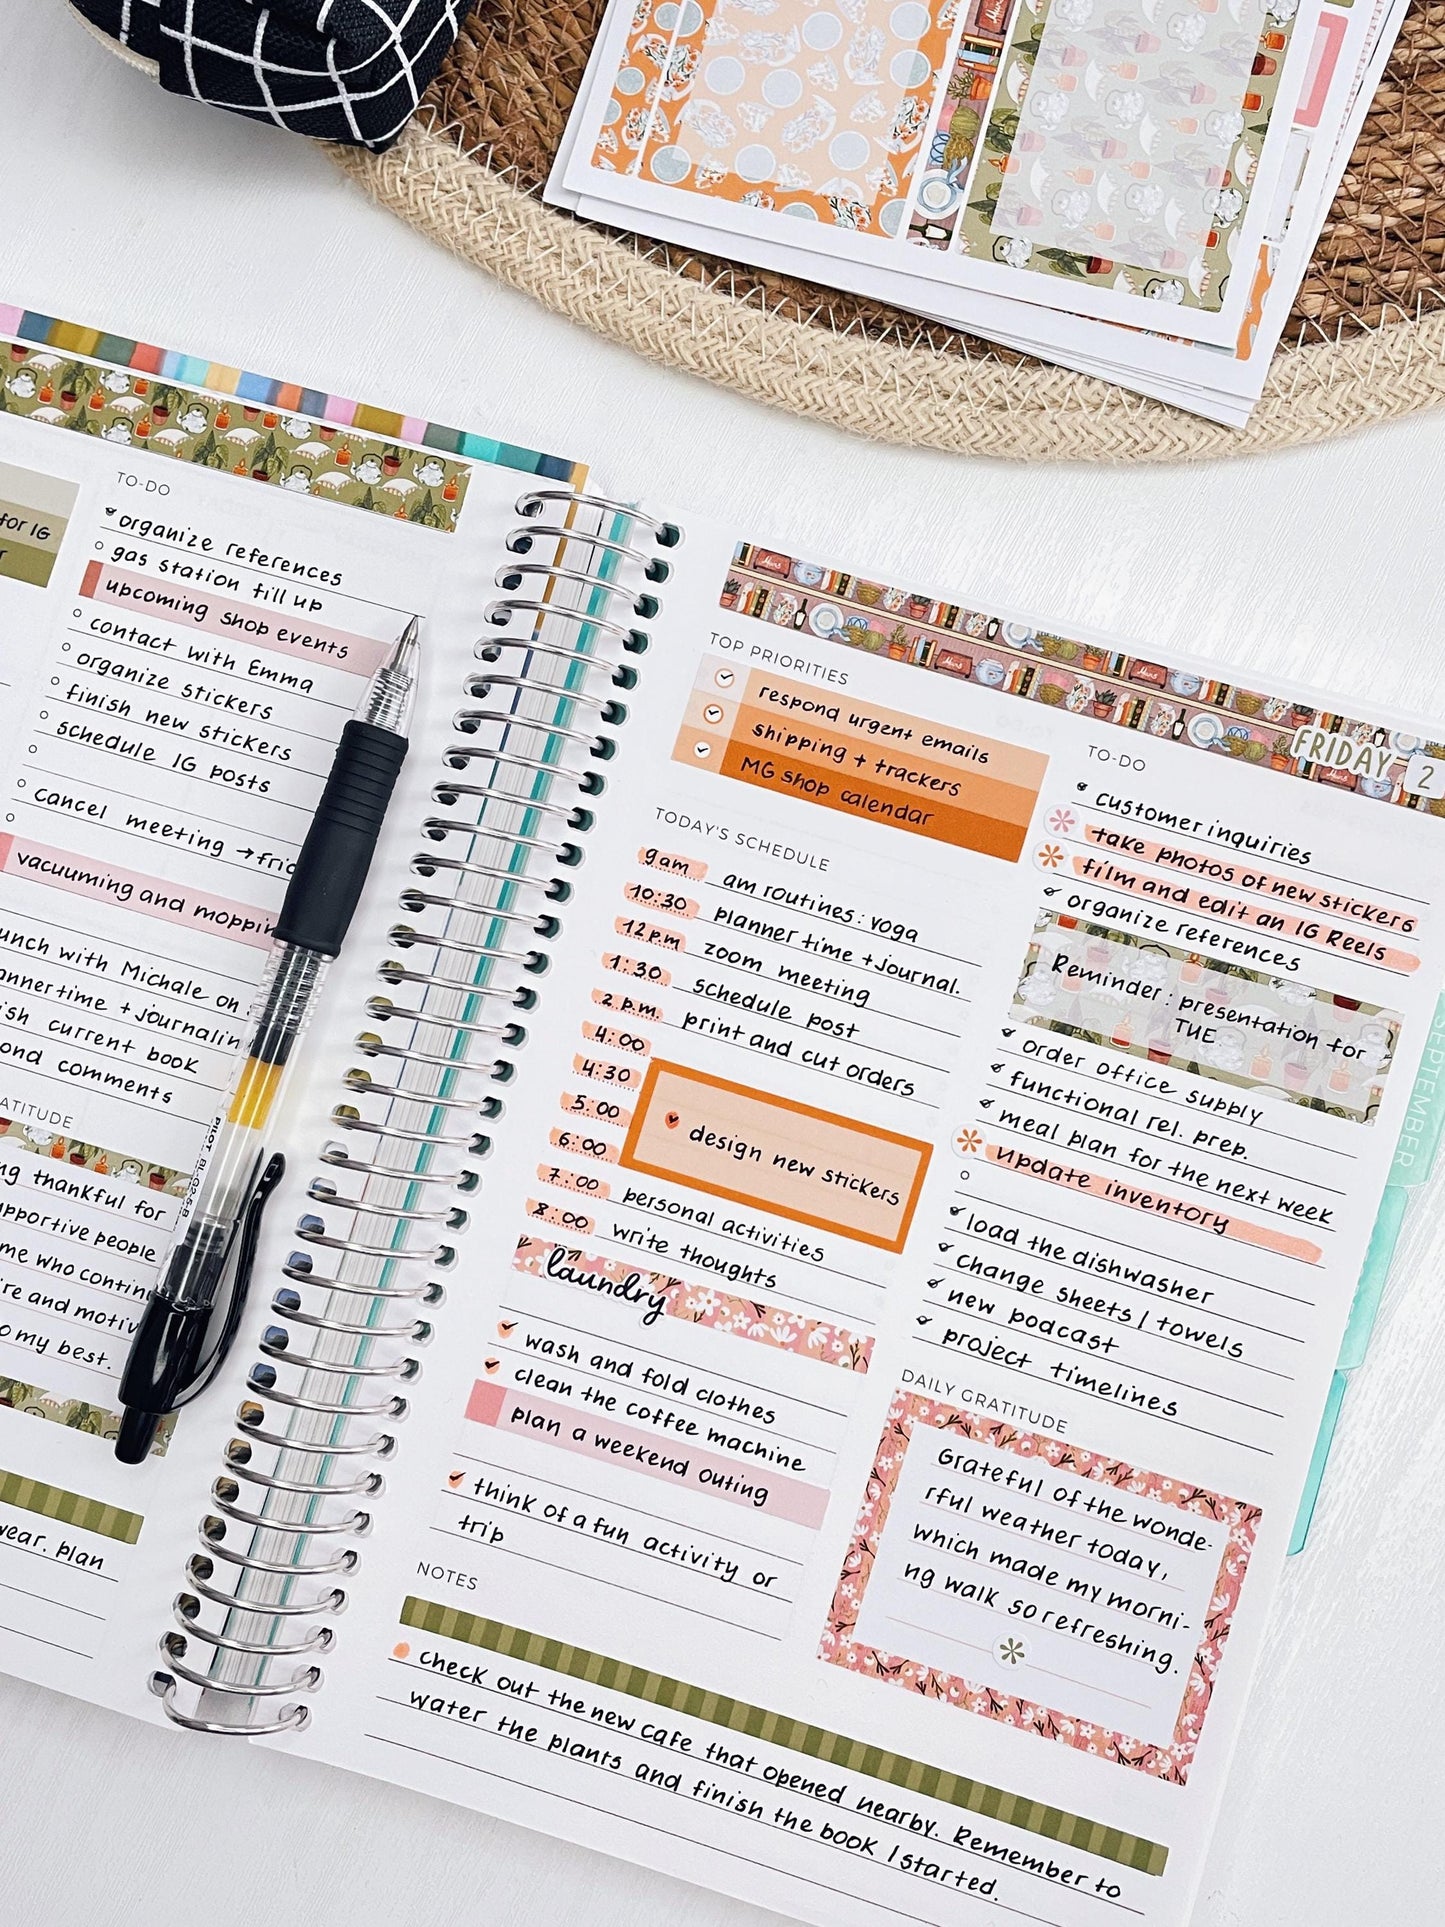 TO-DO
organize references
gas station fill up
upcoming shop events
contact with Emma
organize stickers
finish new stickers
schedule IG posts
cancel meeting →
vacuuming and
for IG
with Michale on
time +
current book
comments
thankful for
people
me who
and
to my best.
wear. plan
PILOT BL-G2-5-B
TOP PRIORITIES
respond urgent emails
shipping + trackers
MG shop calendar
TODAY'S SCHEDULE
9am am routines: yoga
10:30 planner time + journal.
12p.m zoom meeting
1:30 schedule post
2 p.m. print and cut orders
4:00
4:30
5:00 design new stickers
6:00
7:00 personal activities
8:00 write thoughts
laundry
wash and fold clothes
clean the coffee machine
plan a weekend outing
think of a fun activity or
trip
FRIDAY 2
TO-DO
customer inquiries
take photos of new stickers
film and edit an IG Reels
organize references
Reminder: presentation for
TUE
order office supply
functional rel. prep.
meal plan for the next week
update inventory
load the dishwasher
change sheets / towels
new podcast
project timelines
DAILY GRATITUDE
Grateful of the wonde-
rful weather today,
which made my morni-
ng walk so refreshing.
NOTES
check out the new cafe that opened nearby. Remember to
water the plants and finish the book I started.
SEPTEMBER